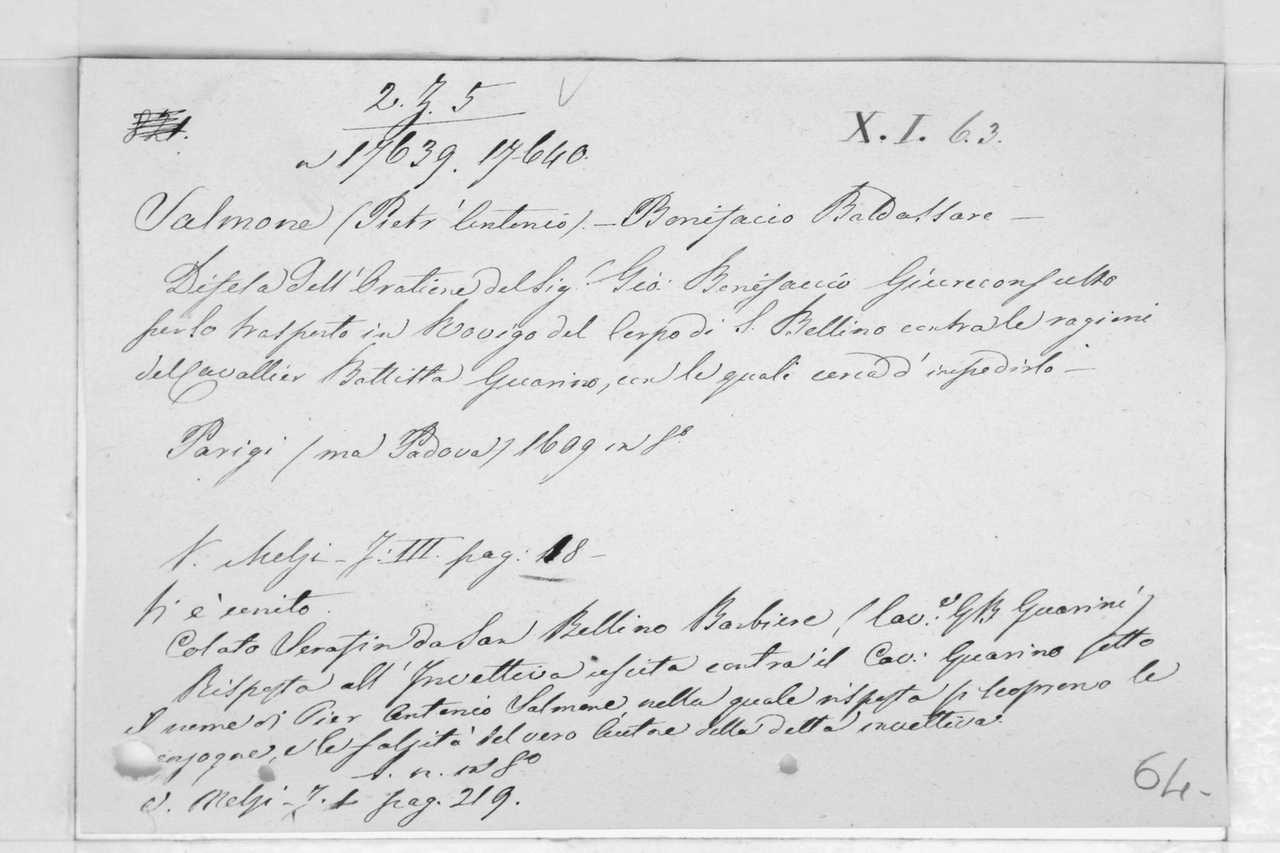 2. Z. 5
a 17639. 17640.
X. I. 6.3.
Salmone (Pietr'Antonio). — Bonifacio Baldassare —
Difesa dell'Oratione del Sig.r Gio: Bonifaccio Giureconsulto
per lo trasporto in Rovigo del Corpo di S. Bellino contra le ragioni
del Cavallier Battista Guarino, con le quali cerca d'impedirlo —
Parigi (ma Padova) 1609 in 8º
V. Melzi — T: III. pag: 18 —
Si è unito.
Colato Serafin da San Bellino Barbiere (Cav.r GB Guarini)
Risposta all'Invettiva uscita contra il Cav: Guarino sotto
il nome di Pier Antonio Salmone nella quale risposta si scoprono le
enzogne, e le falsità del vero Autore della detta invettiva
S. n. in 8º
V. Melzi — T. I pag. 219.
64 —